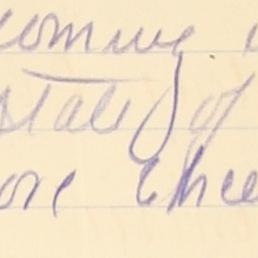 coming
state of
ore chee